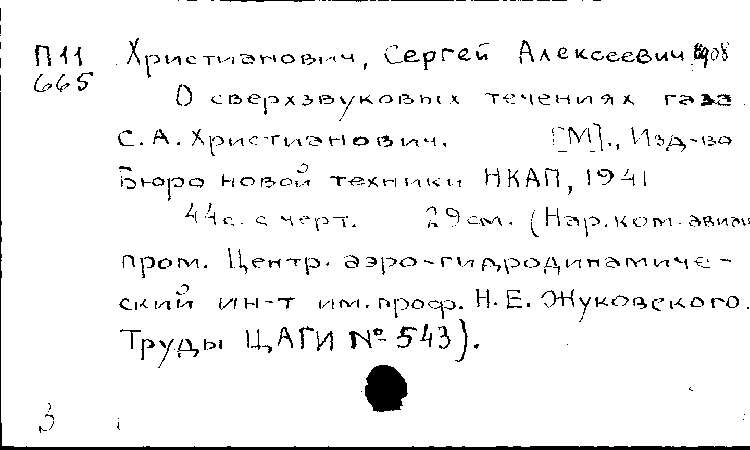 П 11 Христианович, Сергей Алексеевич 1908
665
О сверхзвуковых течениях газа
С. А. Христианович. [М]., Изд-во
Бюро новой техники НКАП, 1941
44с. с черт. 29см. (Нар. ком. авиац
пром. Центр. аэро-гидродинамиче-
ский ин-т им. проф. Н. Е. Жуковского.
Труды ЦАГИ № 543).
3